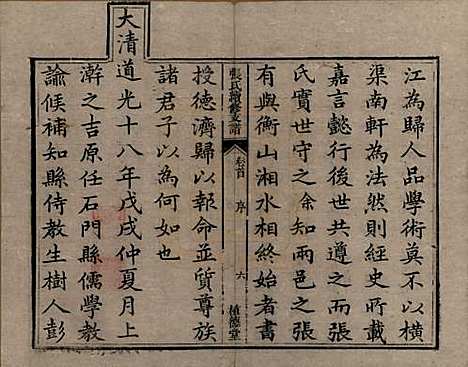 江為歸人品學術莫不以橫
渠南軒為法然則經史所載
嘉言懿行後世共遵之而張
氏實世守之余知兩邑之張
有與衡山湘水相終始者書
張氏續修支譜 卷首 序 六 植德堂
授德濟歸以報命並質尊族
諸君子以為何如也
大清道光十八年戊戌仲夏月上
澣之吉原任石門縣儒學教
諭候補知縣侍教生樹人彭